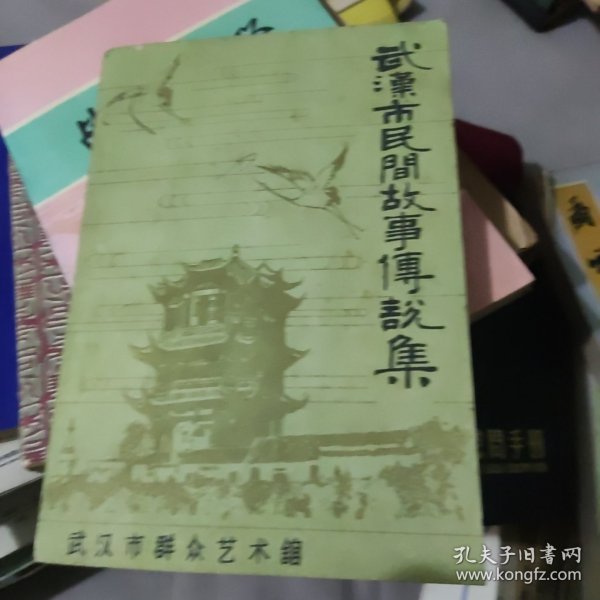 武漢市民間故事傳說集
武汉市群众艺术馆
手册
孔夫子旧书网
www.kongfz.com